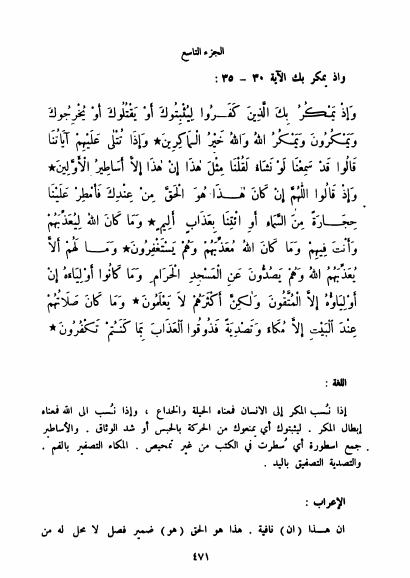 الجزء التاسع
واذ يمكر بك الآية ٣٠ – ٣٥ :
وَإِذْ يَمْكُرُ بِكَ الَّذِينَ كَفَرُوا لِيُثْبِتُوكَ أَوْ يَقْتُلُوكَ أَوْ يُخْرِجُوكَ
وَيَمْكُرُونَ وَيَمْكُرُ اللهُ وَاللهُ خَيْرُ الْمَاكِرِينَ★ وَإِذَا تُتْلَى عَلَيْهِمْ آيَاتُنَا
قَالُوا قَدْ سَمِعْنَا لَوْ نَشَاءُ لَقُلْنَا مِثْلَ هٰذَا إِنْ هٰذَا إِلَّا أَسَاطِيرُ الْأَوَّلِينَ★
وَإِذْ قَالُوا اللَّهُمَّ إِنْ كَانَ هٰذَا هُوَ الْحَقَّ مِنْ عِنْدِكَ فَأَمْطِرْ عَلَيْنَا
حِجَارَةً مِنَ السَّمَاءِ أَوِ ائْتِنَا بِعَذَابٍ أَلِيمٍ★ وَمَا كَانَ اللهُ لِيُعَذِّبَهُمْ
وَأَنْتَ فِيهِمْ وَمَا كَانَ اللهُ مُعَذِّبَهُمْ وَهُمْ يَسْتَغْفِرُونَ★ وَمَا لَهُمْ أَلَّا
يُعَذِّبَهُمُ اللهُ وَهُمْ يَصُدُّونَ عَنِ الْمَسْجِدِ الْحَرَامِ وَمَا كَانُوا أَوْلِيَاءَهُ إِنْ
أَوْلِيَاؤُهُ إِلَّا الْمُتَّقُونَ وَلٰكِنَّ أَكْثَرَهُمْ لَا يَعْلَمُونَ★ وَمَا كَانَ صَلَاتُهُمْ
عِنْدَ الْبَيْتِ إِلَّا مُكَاءً وَتَصْدِيَةً فَذُوقُوا الْعَذَابَ بِمَا كُنْتُمْ تَكْفُرُونَ★
اللغة :
اذا نُسب المكر إلى الانسان فمعناه الحيلة والخداع ، واذا نسب الى الله فمعناه
إبطال المكر . ليثبتوك أي يمنعوك من الحركة بالحبس أو شد الوثاق . والأساطير
جمع اسطورة أي سُطرت في الكتب من غير تمحيص . المكاء التصفير بالفم .
والتصدية التصفيق باليد .
الإعراب :
ان هـذا (ان) نافية . هذا هو الحق (هو) ضمير فصل لا محل له من
٤٧١